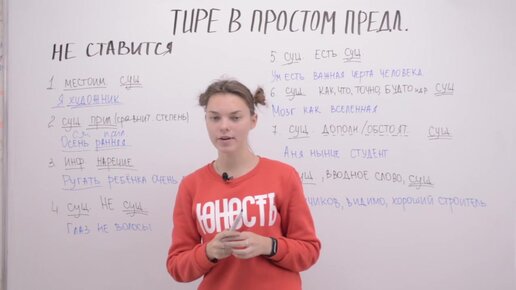 ТИРЕ В ПРОСТОМ ПРЕДЛ.
НЕ СТАВИТСЯ
1 МЕСТОИМ. СУЩ.
Я ХУДОЖНИК
2 СУЩ. ПРИЛ (сравнит степень)
Осень ранняя
3 ИНФ. НАРЕЧИЕ
Ругать ребёнка очень
4 СУЩ. НЕ СУЩ.
Глаз не волосы
5 СУЩ ЕСТЬ СУЩ
Ум есть важная черта человека
6 СУЩ. КАК, ЧТО, ТОЧНО, БУДТО СУЩ
Мозг как вселенная
7 СУЩ. ДОПОЛН/ОБСТОЯТ. СУЩ.
Аня нынче студент
, ВВОДНОЕ СЛОВО, СУЩ.
, видимо, хороший строитель
ЮНОСТЬ